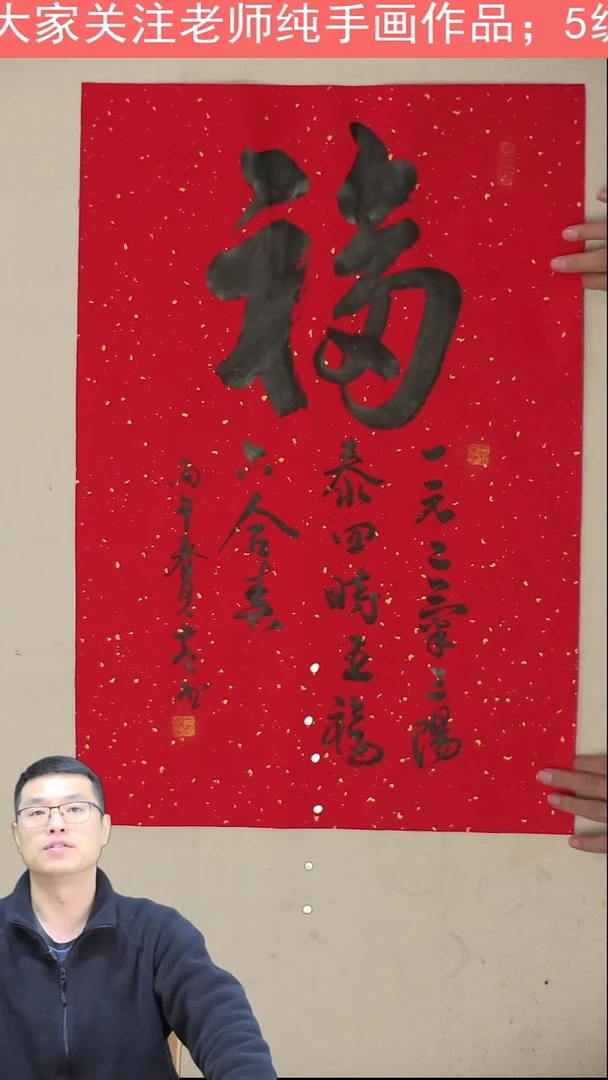 大家关注老师纯手画作品；5
福
一元二氣三陽
泰四時五福
六合春
丙午春月